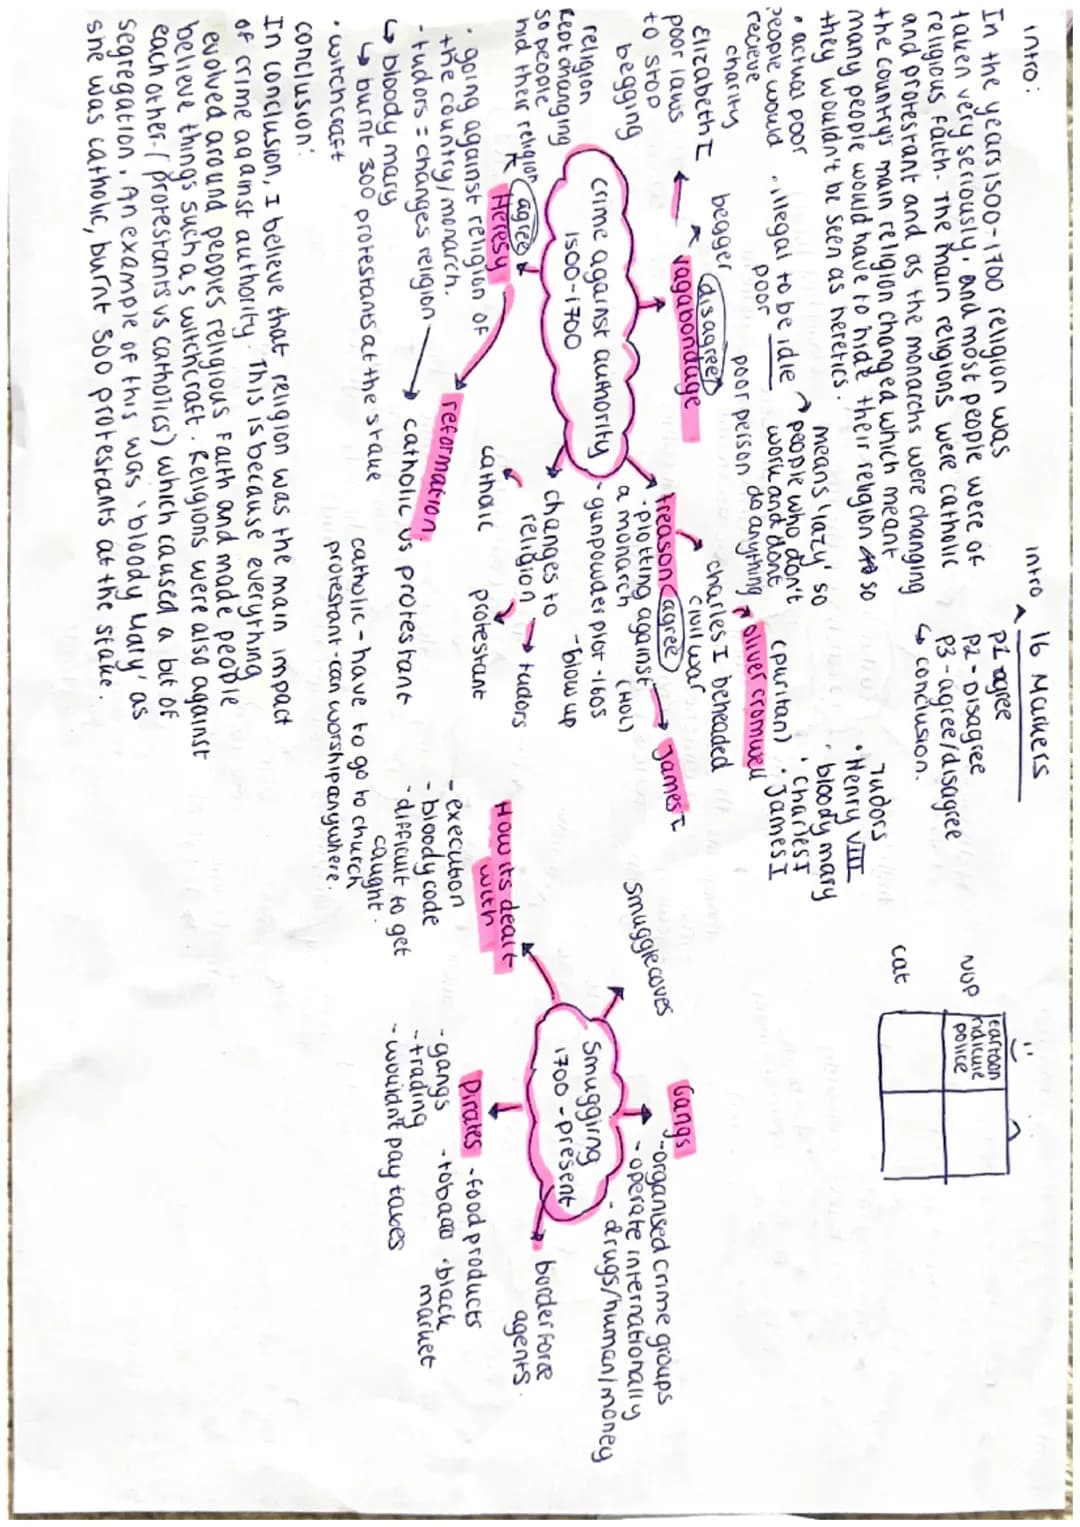 16 Markers
intro
P1 agree
P2 - Disagree
P3 - agree/disagree
↳ conclusion.
intro:
In the years 1500-1700 religion was
taken very seriously, and most people were of
religious faith. The main religions were catholic
and protestrant and as the monarchs were changing
the country's main religion changed which meant
many people would have to hide their religion so
they wouldn't be seen as heretics.
Tudors
• Henry VIII
• bloody mary
• Charles I
• James I
cartoon
ridicule
police
NOP
cat
crime against authority
1500-1700
vagabondage
disagree
begger
• illegal to be idle
poor
means 'lazy' so
people who don't
work and dont
do anything
poor person
• actual poor
people would
recieve
charity
Elizabeth I
poor laws
to stop
begging
treason
agree
• plotting against
a monarch
• gunpowder plot - 1605
- blow up
(HOL)
James I
charles I beheaded
civil war
oliver cromwell
(puritan)
changes to
religion
tudors
catholic
protestant
Heresy
agree
religion
kept changing
so people
hid their religion
• going against religion of
the country/monarch.
- tudors = changes religion
catholic vs protestrant
↳ bloody mary
↳ burnt 300 protestants at the stake
• witchcraft
reformation
catholic - have to go to church
protestrant - can worship anywhere.
conclusion:
In conclusion, I believe that religion was the main impact
of crime against authority. This is because everything
evolved around peoples religious faith and made people
believe things such as witchcraft. Religions were also against
each other (protestants vs catholics) which caused a bit of
segregation. An example of this was 'bloody Mary' as
she was catholic, burnt 300 protestants at the stake.
Smuggling
1700 - present
Gangs
- organised crime groups
- operate internationally
- drugs/human/money
smuggle coves
How its dealt
with
- execution
- bloody code
- difficult to get
caught.
border force
agents.
Pirates
- food products
- gangs
- tobacco
• black
market
- trading
- wouldn't pay taxes